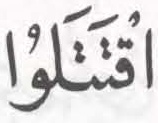 اقْتَتَلُوا